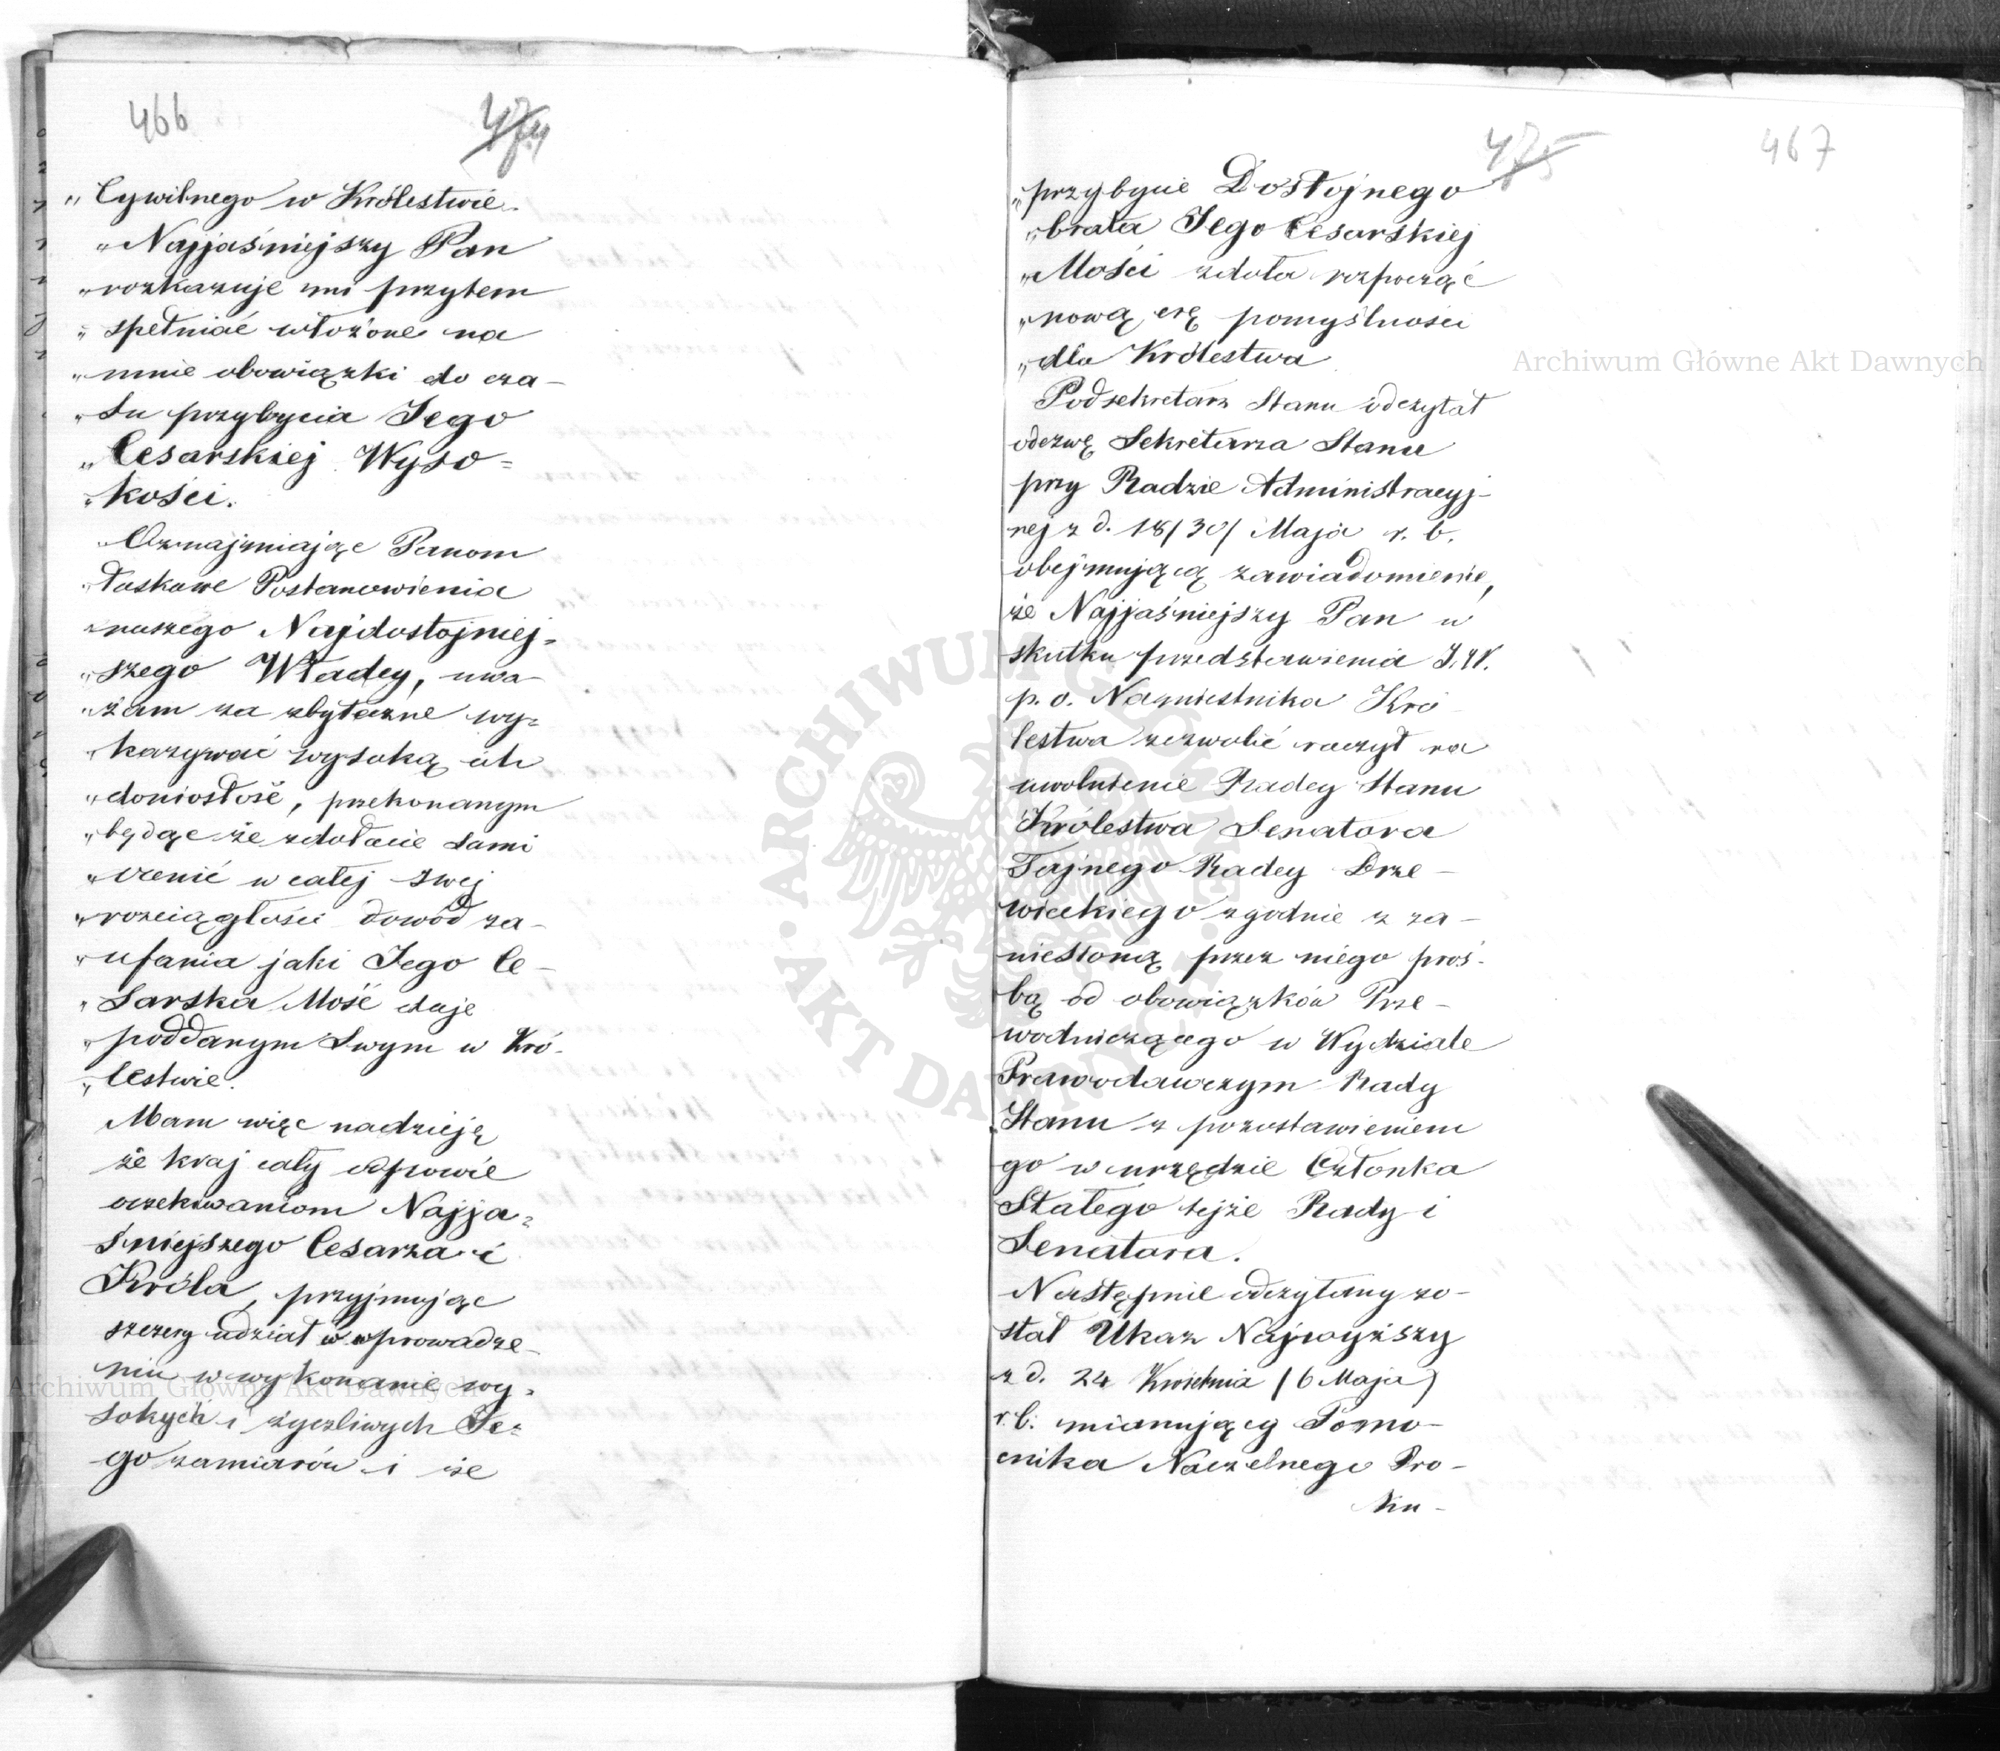 466
474
„Cywilnego w Królestwie.
„Najjaśniejszy Pan
„rozkazuje mi przytem
„spełniać włożone na
„mnie obowiązki do cza–
„su przybycia Jego
„Cesarskiej Wyso=
„kości.
„Oznajmiając Panom
„łaskawe Postanowienia
„naszego Najdostojniej=
„szego Władcy, uwa–
„żam za zbyteczne wy=
„kazywać wysoką ich
„doniosłość, przekonanym
„będąc że zdołacie sami
„cenić w całej swej
„rozciągłości dowód za–
„ufania jaki Jego Ce–
„sarska Mość daje
„poddanym Swym w Kró–
„lestwie.
Mam więc nadzieję
że kraj cały odpowie
oczekiwaniom Najja=
śniejszego Cesarza i
Króla, przyjmując
szczery udział w wprowadze–
niu w wykonanie wy=
sokich i życzliwych Je=
go zamiarów i że
475
467
„przybycie Dostojnego
„brata Jego Cesarskiej
„Mości zdoła rozpocząć
„nową erę pomyślności
„dla Królestwa
Podsekretarz Stanu odczytał
odezwę Sekretarza Stanu
przy Radzie Administracyj–
nej z d. 18/30/ Maja r. b.
obejmującą zawiadomienie,
że Najjaśniejszy Pan w
skutku przedstawienia J.W.
p. o. Namiestnika Kró
lestwa zezwolić raczył na
uwolnienie Radcy Stanu
Królestwa Senatora
Tajnego Radcy Drze–
wieckiego zgodnie z za–
niesioną przez niego proś–
bą od obowiązków Prze–
wodniczącego w Wydziale
Prawodawczym Rady
Stanu z pozostawieniem
go w urzędzie Członka
Stałego tejże Rady i
Senatora.
Następnie odczytany zo–
stał Ukaz Najwyższy
z d. 24 Kwietnia (6 Maja)
r.b. mianujący Pomo–
cnika Naczelnego Pro–
ku–
Archiwum Główne Akt Dawnych
Archiwum Główne Akt Dawnych
ARCHIWUM GŁÓWNE · AKT DAWNYCH ·